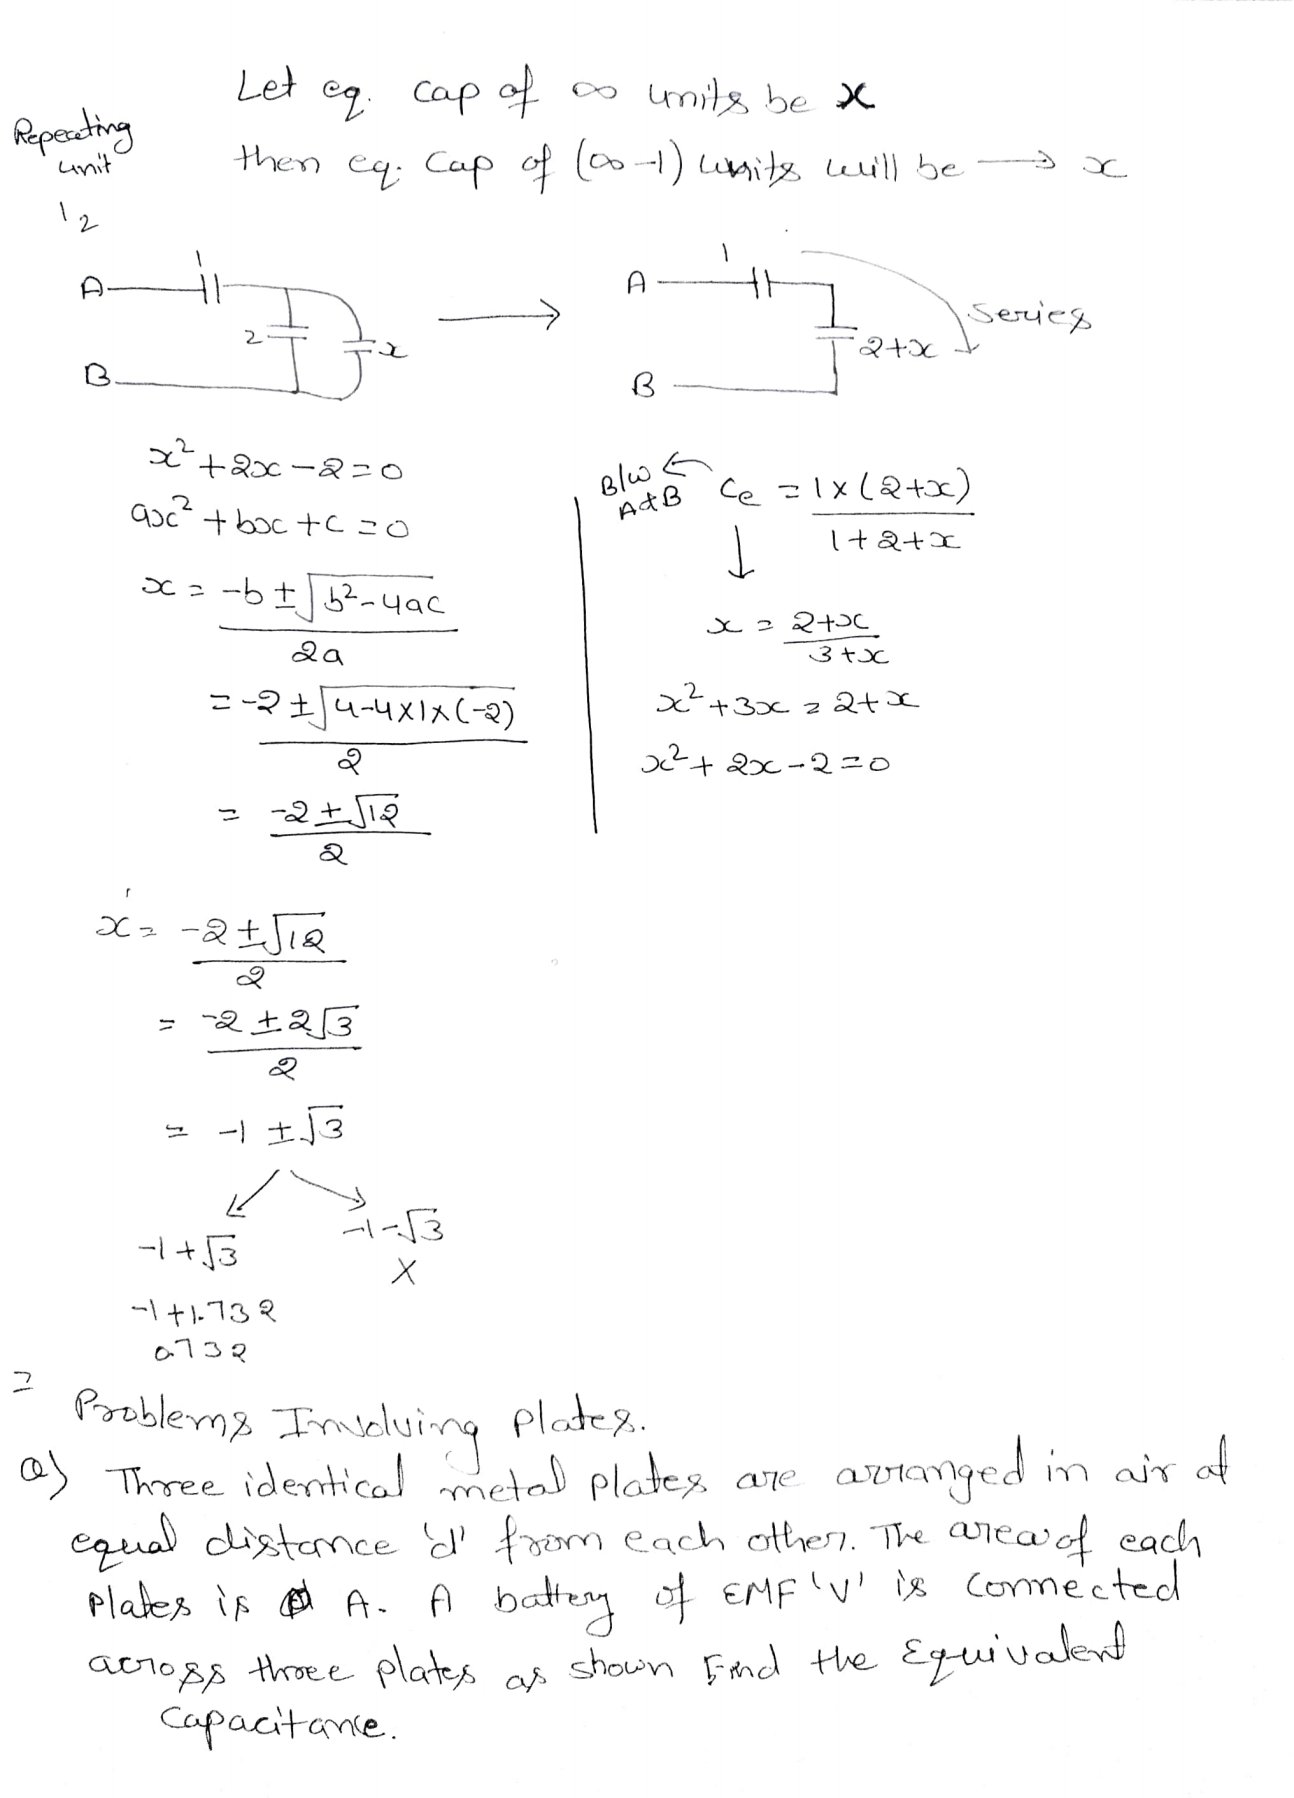 Let eq. cap of ∞ units be x
Repeating
unit
then eq. cap of (∞-1) units will be → x
1 2
A 1 2 x
B
→
A 1 2+x Series
B
x² + 2x - 2 = 0
ax² + bx + c = 0
x = -b ± √b² - 4ac
2a
= -2 ± √4-4×1×(-2)
2
= -2 ± √12
2
B/w A & B ← Ce = 1 × (2+x)
1 + 2 + x
↓
x = 2+x
3+x
x² + 3x = 2 + x
x² + 2x - 2 = 0
x = -2 ± √12
2
= -2 ± 2√3
2
= -1 ± √3
-1 + √3
-1 - √3
X
-1 + 1.732
0.732
=
Problems Involving plates.
Q) Three identical metal plates are arranged in air at
equal distance 'd' from each other. The area of each
plates is A. A battery of EMF 'V' is connected
across three plates as shown Find the Equivalent
capacitance.